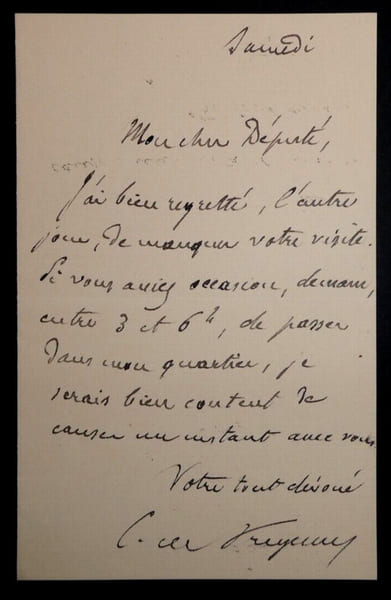 Samedi
Mon cher Député,
J'ai bien regretté, l'autre
jour, de manquer votre visite.
Si vous aviez occasion, demain,
entre 3 et 6h, de passer
dans mon quartier, je
serais bien content de
causer un instant avec vous
Votre tout dévoué
C. de Freycinet